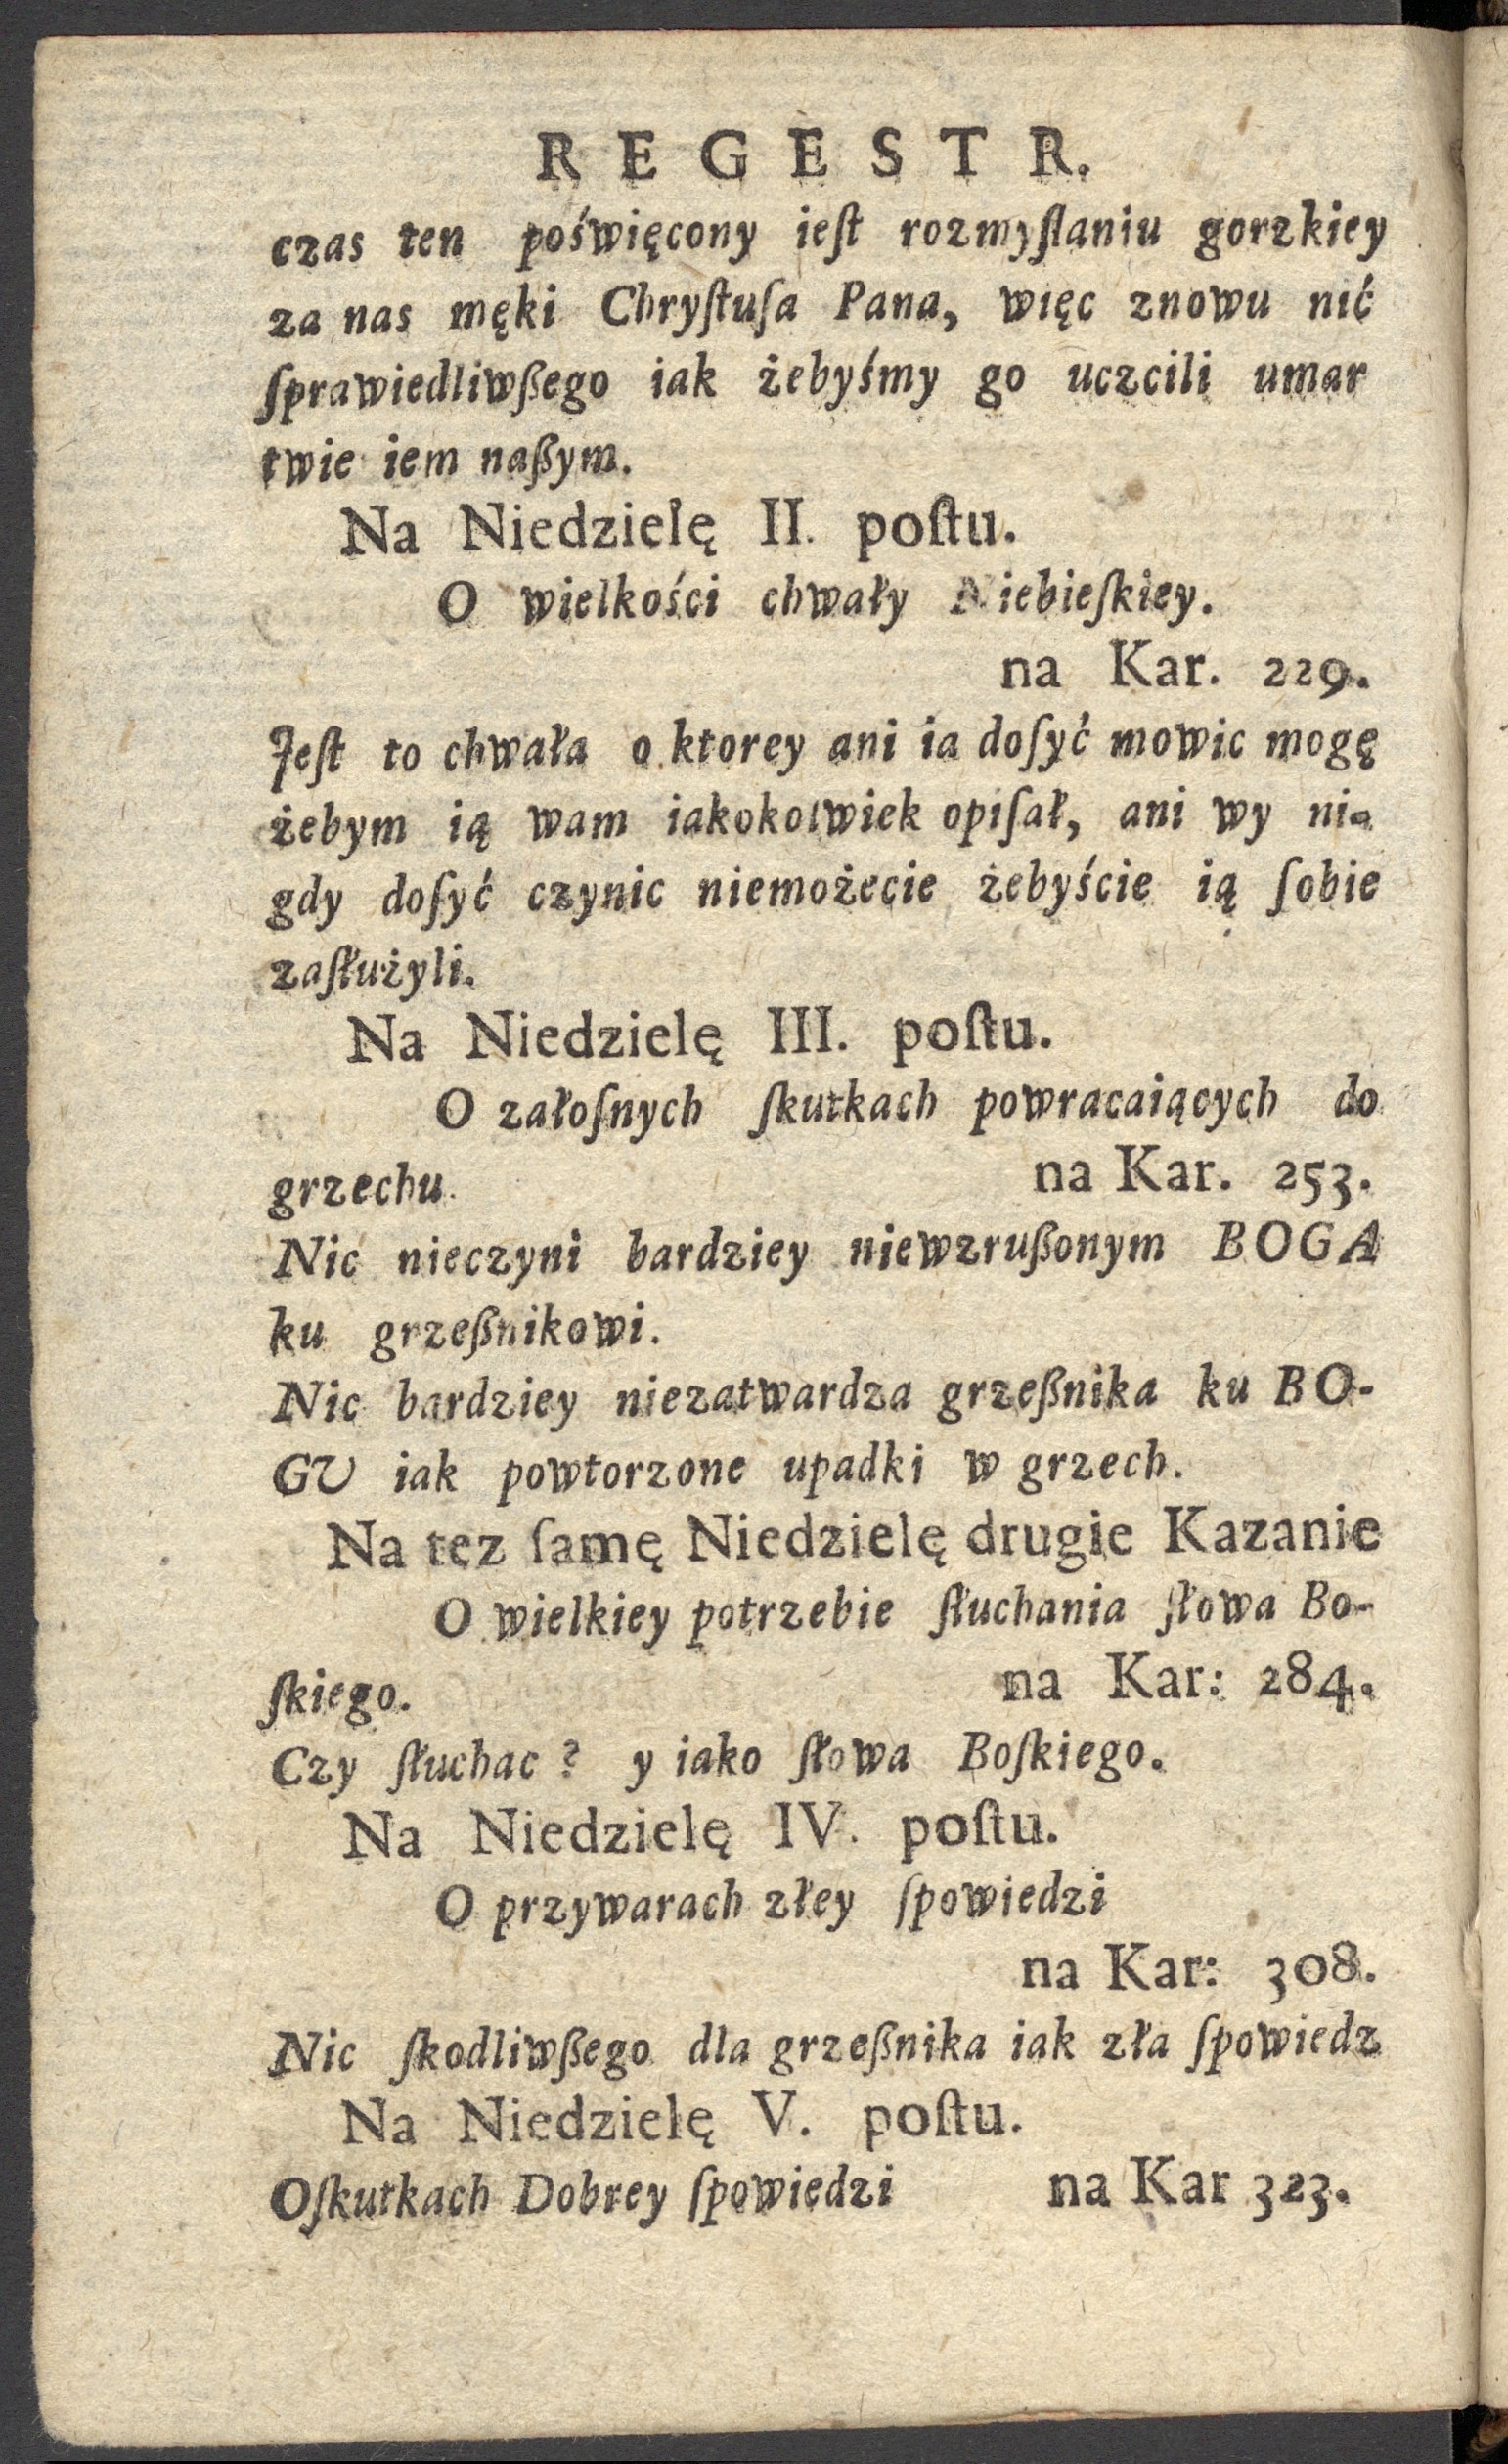 REGESTR.
czas ten poświęcony ieſt rozmyſlaniu gorzkiey
za nas męki Chryſtuſa Pana, więc znowu nić
ſprawiedliwßego iak żebyśmy go uczcili umar
twie iem naßym.
Na Niedzielę II. poſtu.
O wielkości chwały Niebieſkiey.
na Kar. 229.
Jeſt to chwała o ktorey ani ia doſyć mowic mogę
żebym ią wam iakokolwiek opiſał, ani wy ni-
gdy doſyć czynic niemożecie żebyście ią ſobie
zaſłużyli.
Na Niedzielę III. poſtu.
O załoſnych ſkutkach powracaiących do
grzechu. na Kar. 253.
Nic nieczyni bardziey niewzrußonym BOGA
ku grzeßnikowi.
Nic bardziey niezatwardza grzeßnika ku BO-
GU iak powtorzone upadki w grzech.
Na tez ſamę Niedzielę drugie Kazanie
O wielkiey potrzebie ſłuchania ſłowa Bo-
ſkiego. na Kar: 284.
Czy ſłuchac? y iako ſłowa Boſkiego.
Na Niedzielę IV. poſtu.
O przywarach złey ſpowiedzi
na Kar: 308.
Nic ſkodliwßego dla grzeßnika iak zła ſpowiedz
Na Niedzielę V. poſtu.
Oſkutkach Dobrey ſpowiedzi na Kar 323.